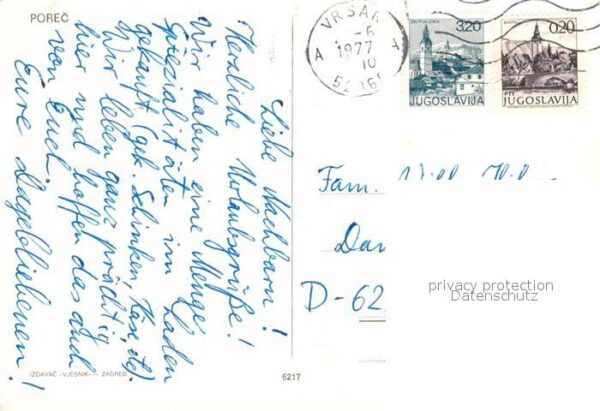 POREČ
Liebe Nachbarn!
Herzliche Urlaubsgrüße!
Wir haben eine Menge
Spezialitäten im Laden
gekauft (gek. Schinken, Käse, etc).
Wir leben ganz prächtig
hier und hoffen das auch
von Euch.
Eure Dagebliebenen!
IZDAVAČ »VJESNIK« — ZAGREB
6217
VRSAR
A A
-6
1977
10
3,20
JUGOSLAVIJA
0.20
PTT
JUGOSLAVIJA
Fam.
D-62
privacy protection
Datenschutz